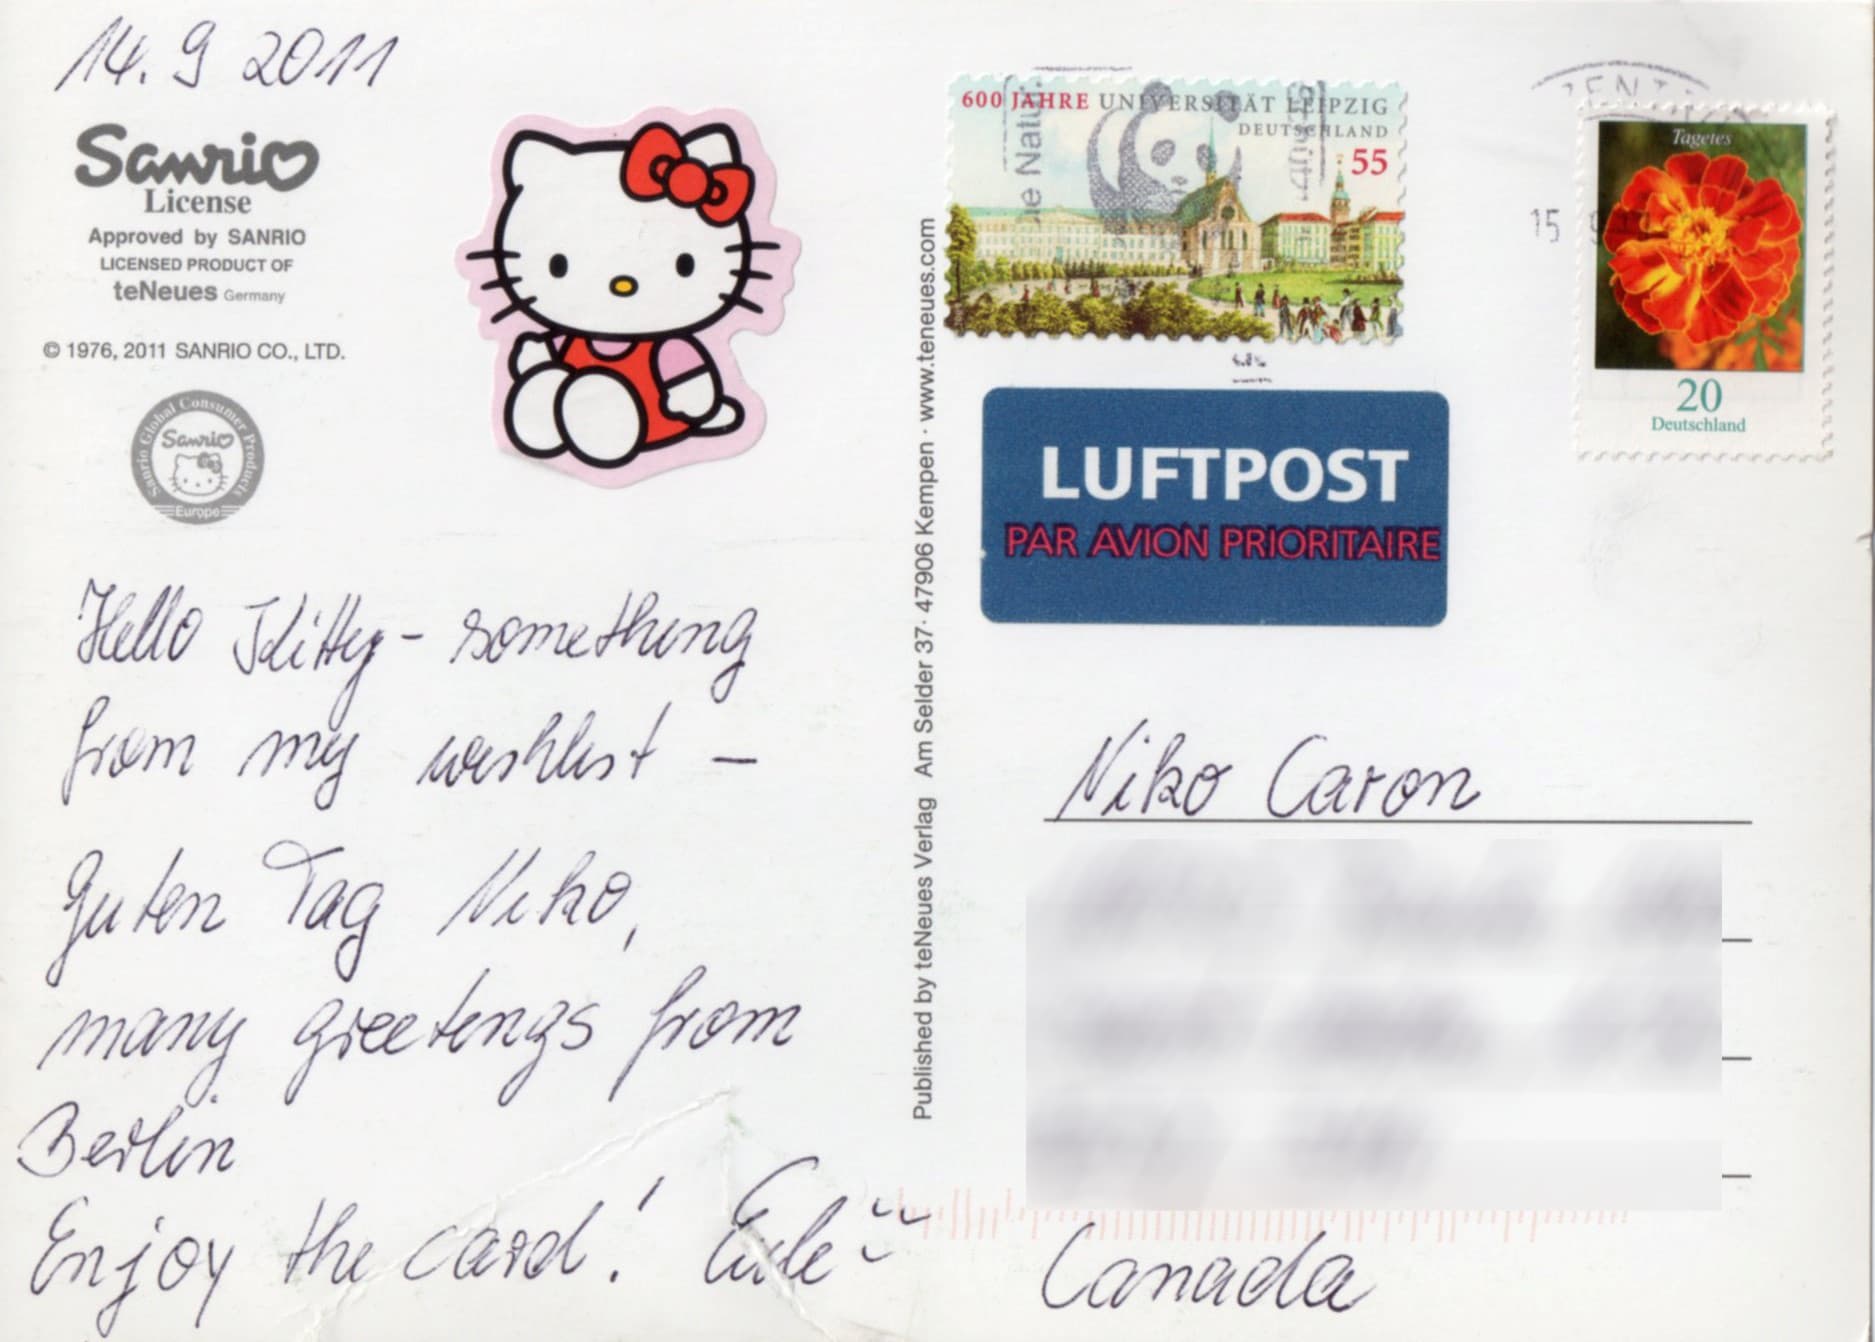 14. 9 2011
Sanrio
License
Approved by SANRIO
LICENSED PRODUCT OF
teNeues Germany
© 1976, 2011 SANRIO CO., LTD.
Sanrio Global Consumer Products
Sanrio
Europe
Hello Kitty - something
from my wishlist -
Guten Tag Niko,
many greetings from
Berlin
Enjoy the card! Eule
Published by teNeues Verlag Am Selder 37 · 47906 Kempen · www.teneues.com
600 JAHRE UNIVERSITÄT LEIPZIG
DEUTSCHLAND
55
Tagetes
20
Deutschland
15
LUFTPOST
PAR AVION PRIORITAIRE
Niko Caron
Canada